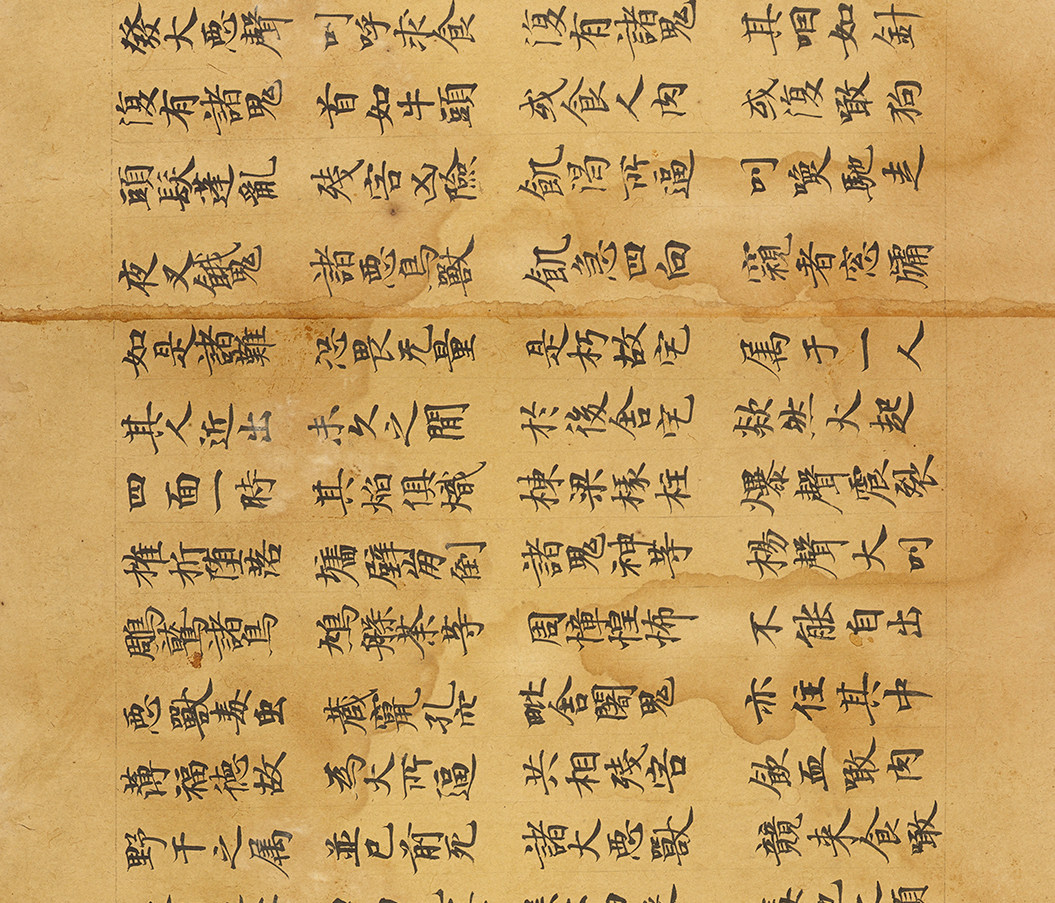 發大惡聲 叫呼求食 復有諸鬼 其咽如針
復有諸鬼 首如牛頭 或食人肉 或復噉狗
頭髮蓬亂 残害凶險 飢渴所逼 叫喚馳走
夜叉餓鬼 諸惡鳥獸 飢急四向 窺看窓牖
如是諸難 恐畏无量 是朽故宅 属于一人
其人近出 未久之間 於後舍宅 欻然火起
四面一時 其焰俱熾 棟梁椽柱 爆聲震裂
摧折墮落 墻壁崩倒 諸鬼神等 揚聲大叫
鵰鷲諸鳥 鳩槃荼等 周慞惶怖 不能自出
惡獸毒虫 藏竄孔穴 毗舍闍鬼 亦住其中
薄福德故 為火所逼 共相残害 飲血噉肉
野干之属 並已前死 諸大惡獸 競来食噉